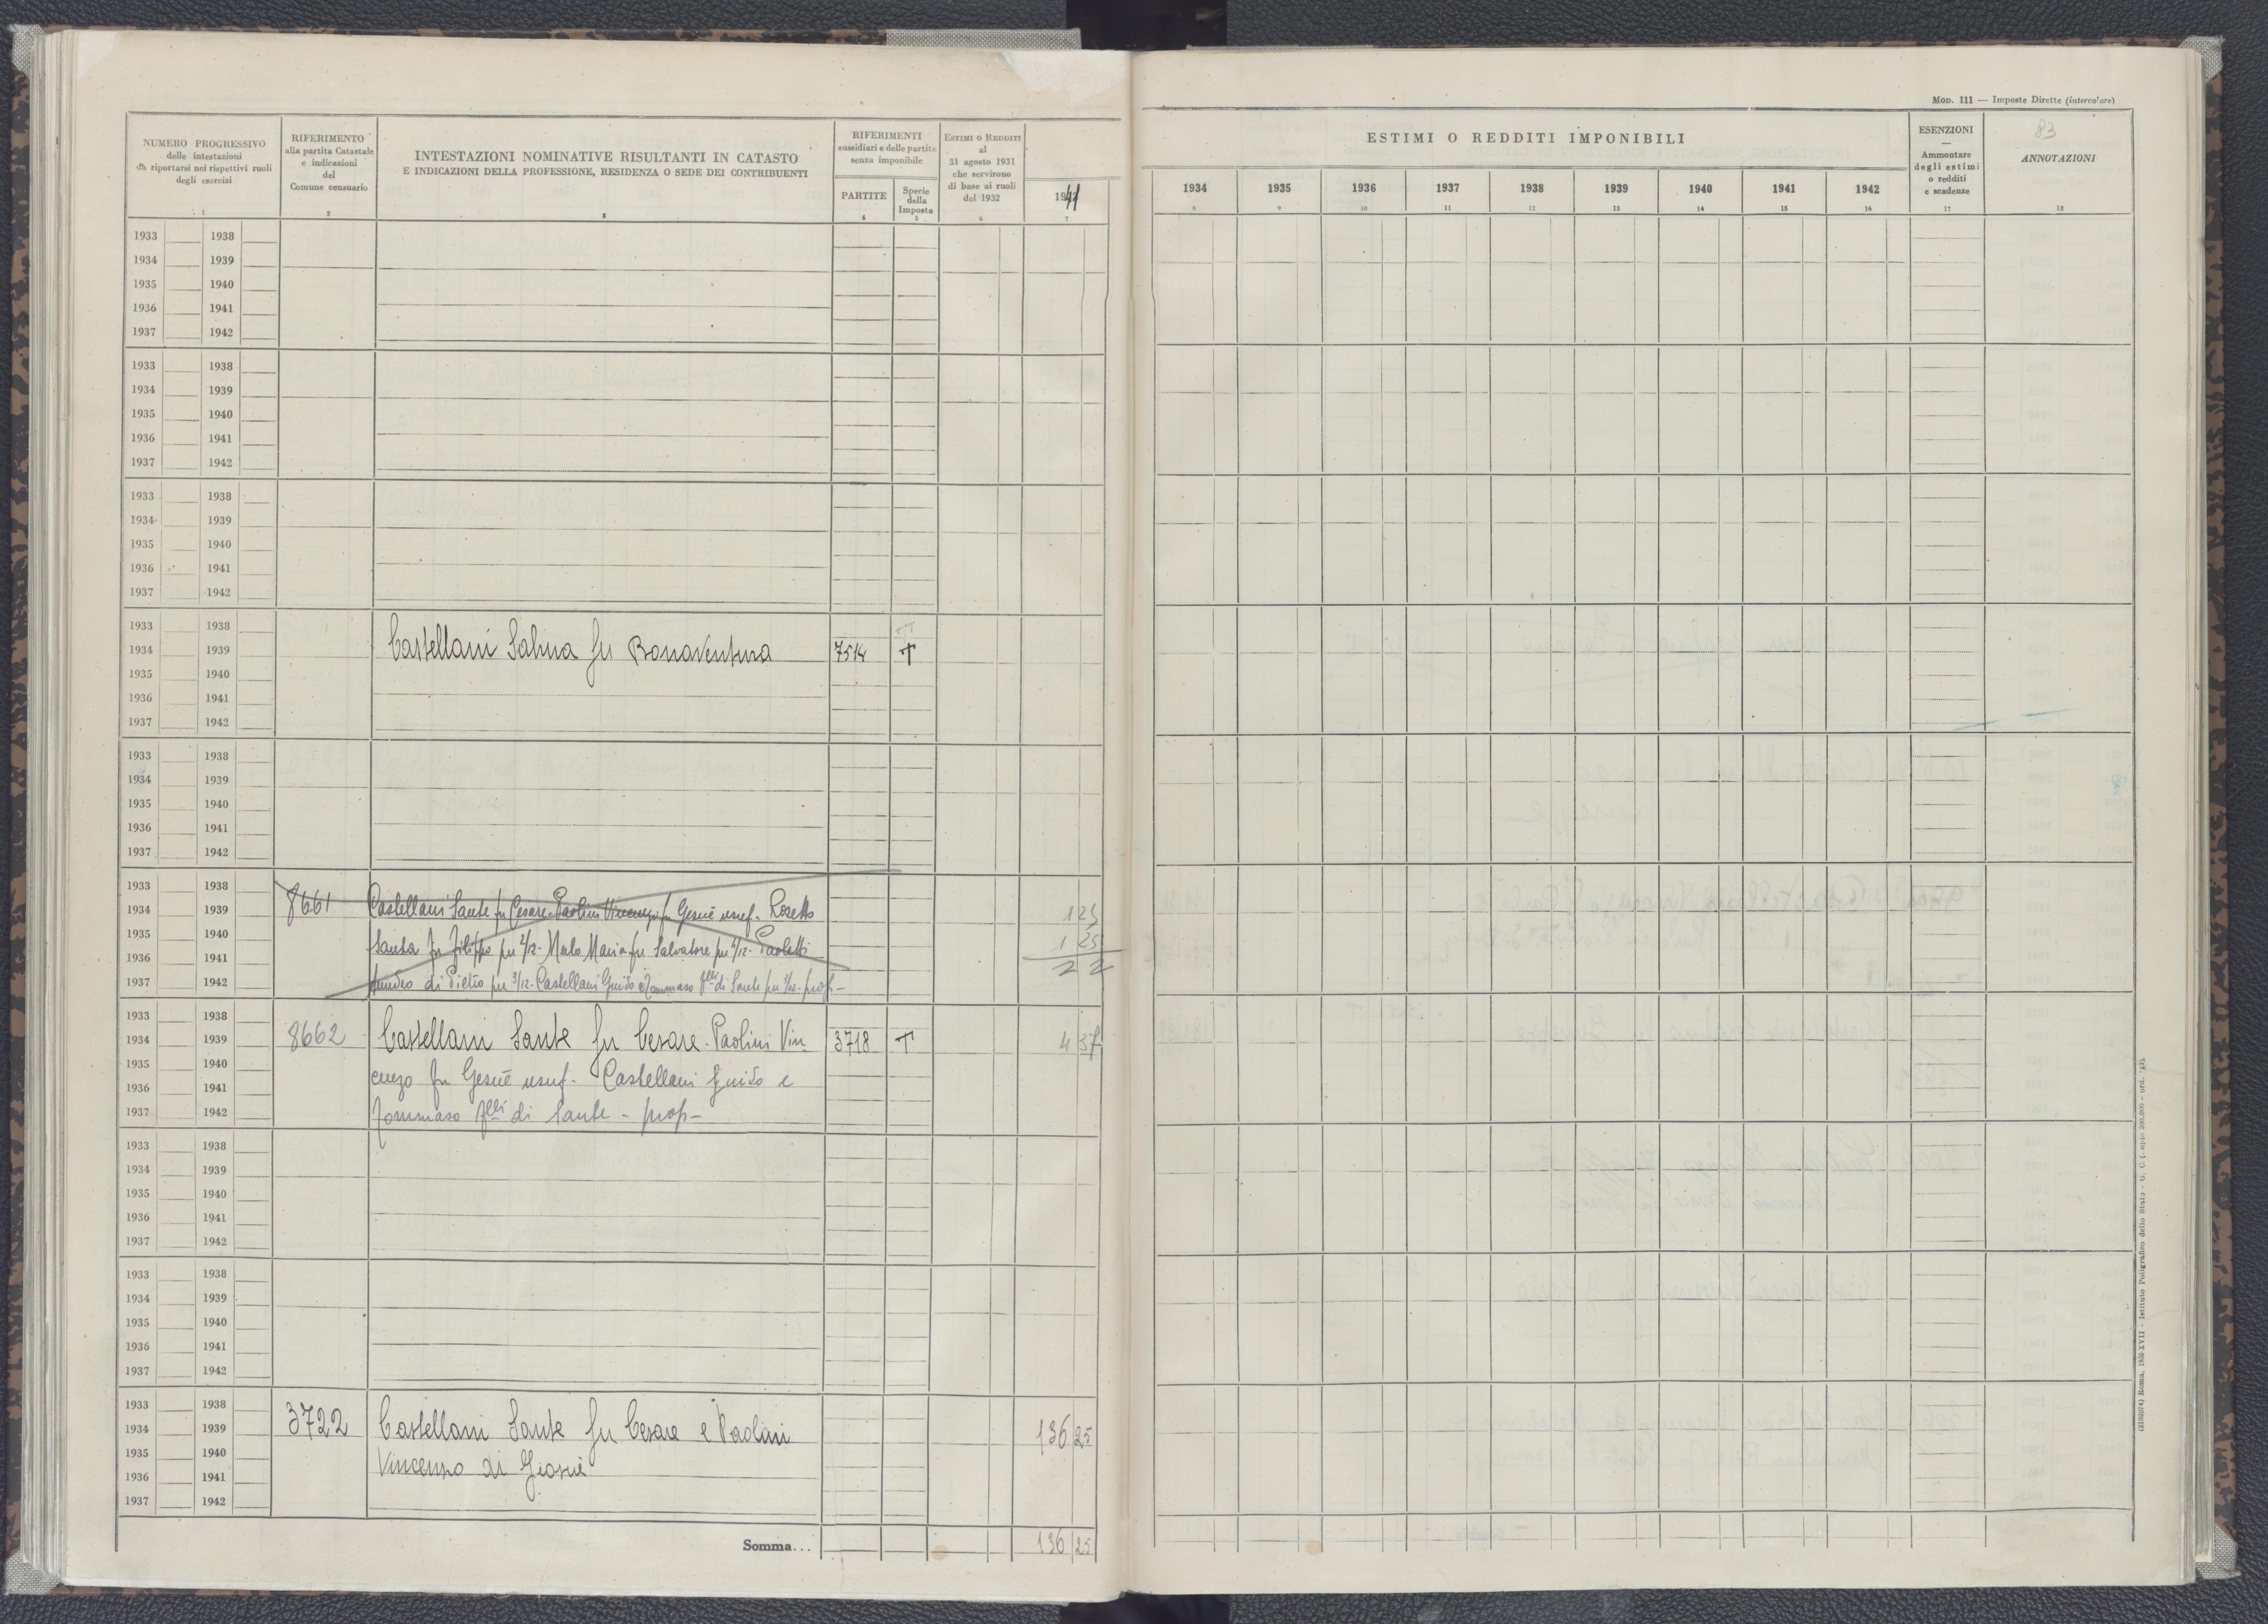 Mod. III — Imposte Dirette (intercalare)
83
NUMERO PROGRESSIVO
delle intestazioni
da riportarsi nei rispettivi ruoli
degli esercizi
1
RIFERIMENTO
alla partita Catastale
e indicazioni
del
Comune censuario
2
INTESTAZIONI NOMINATIVE RISULTANTI IN CATASTO
E INDICAZIONI DELLA PROFESSIONE, RESIDENZA O SEDE DEI CONTRIBUENTI
3
RIFERIMENTI
sussidiari e delle partite
senza imponibile
PARTITE
4
Specie
della
Imposta
5
Estimi o Redditi
al
31 agosto 1931
che servirono
di base ai ruoli
del 1932
6
1941
7
ESTIMI O REDDITI IMPONIBILI
1934 1935 1936 1937 1938 1939 1940 1941 1942
8 9 10 11 12 13 14 15 16
ESENZIONI
—
Ammontare
degli estimi
o redditi
e scadenze
17
ANNOTAZIONI
18
1933 1938
1934 1939
1935 1940
1936 1941
1937 1942
1933 1938
1934 1939
1935 1940
1936 1941
1937 1942
1933 1938
1934 1939
1935 1940
1936 1941
1937 1942
1933 1938
1934 1939 Castellani Sabina fu Bonaventura 7514 T
1935 1940
1936 1941
1937 1942
1933 1938
1934 1939
1935 1940
1936 1941
1937 1942
1933 1938
1934 1939 8661 Castellani Sante fu Cesare - Paolini Vincenzo fu Gesuè usuf. - Rosetto 1 25
1935 1940 Santa fu Filippo per 2/12 - Merlo Maria fu Salvatore per 6/12 - Paoletti 1 25
1936 1941 2 2
1937 1942 di Pietro per 3/12 - Castellani Guido e Tommaso f.lli di Sante per 1/12 - prop -
1933 1938
1934 1939 8662 Castellani Sante fu Cesare - Paolini Vin 3718 T 4 37
1935 1940 cenzo fu Gesuè usuf. Castellani Guido e
1936 1941
1937 1942 Tommaso f.lli di Sante - prop -
1933 1938
1934 1939
1935 1940
1936 1941
1937 1942
1933 1938
1934 1939
1935 1940
1936 1941
1937 1942
1933 1938
1934 1939 3722 Castellani Sante fu Cesare e Paolini 136 25
1935 1940 Vincenzo di Giosuè
1936 1941
1937 1942
Somma... 136 25